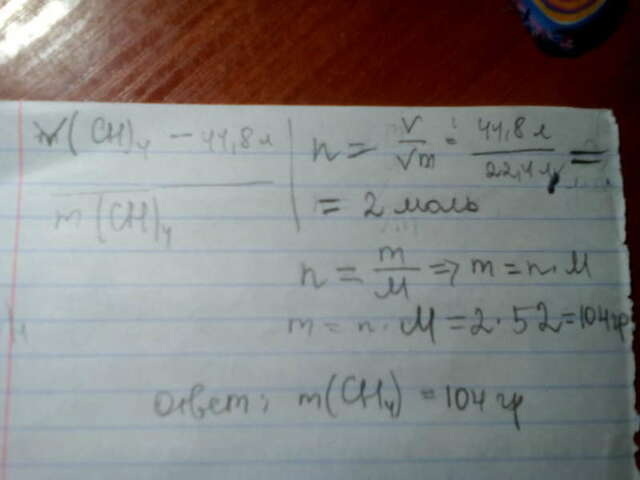 V(CH)₄ – 44,8 л
m(CH)₄
n = V/Vm = 44,8 л/22,4 л =
= 2 моль
n = m/M => m = n·M
m = n·M = 2·52 = 104 гр
ответ: m(CH₄) = 104 гр